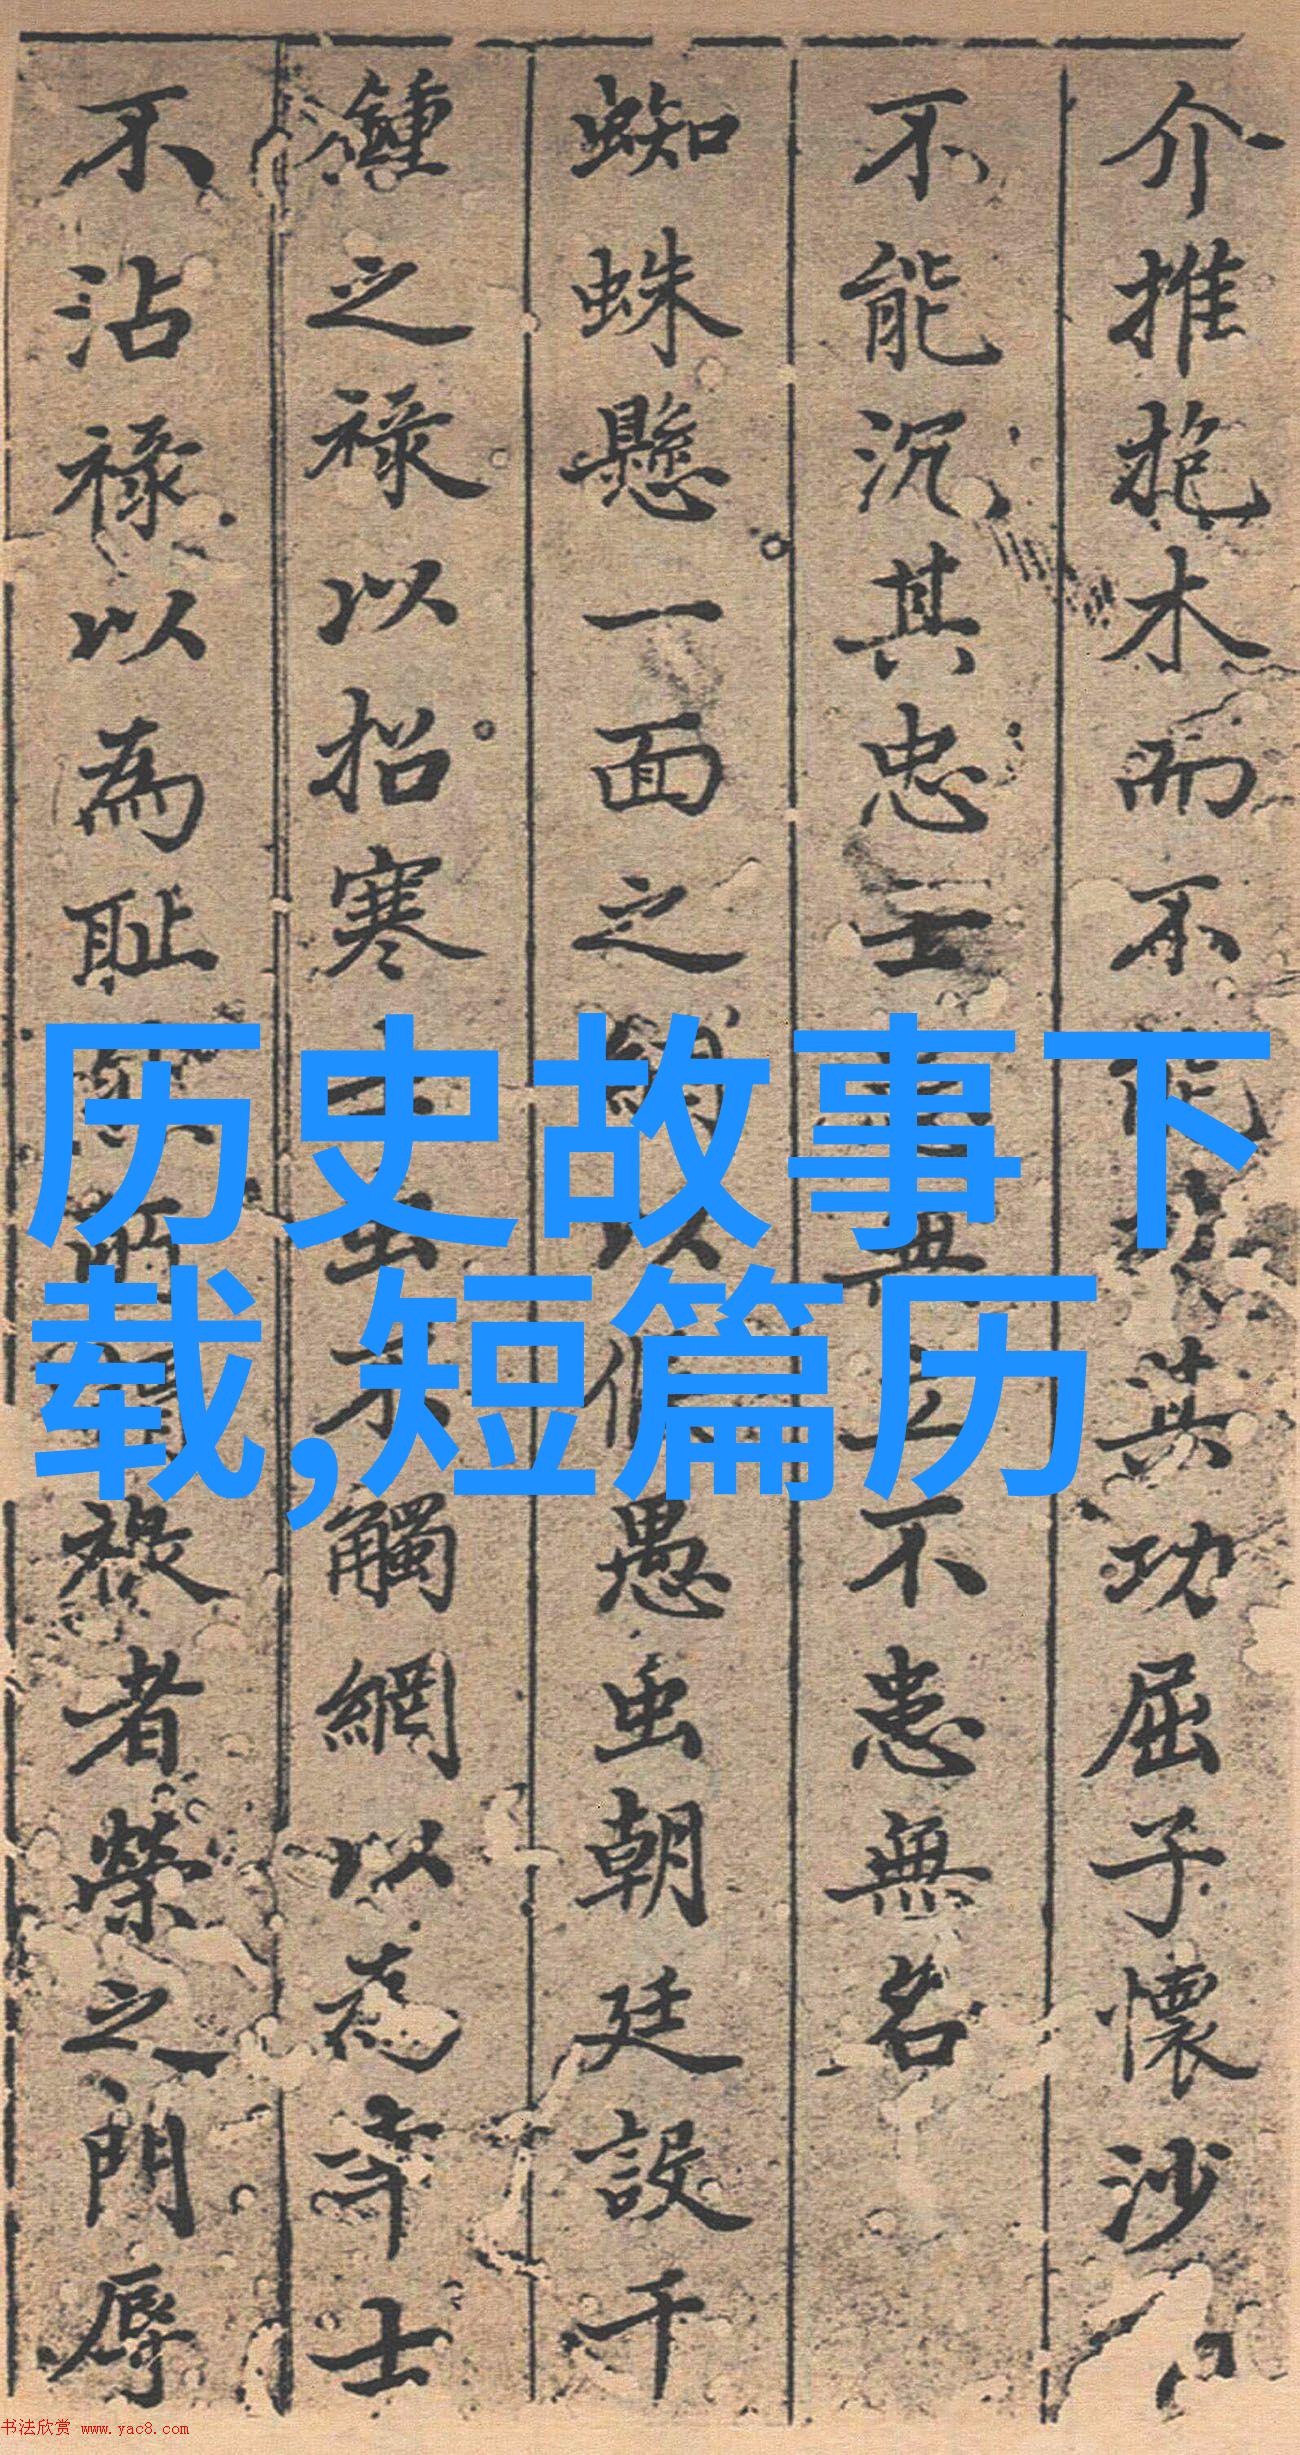 介推抱木而不能
其功屈子懷沙
不能沉其忠士
不患無名
蜘蛛懸一面之網以
愚虫朝廷設千
鍾之祿以招寒士
觸網以為
士
不沾祿以為耻
者榮之門辱
历史故事下
载,短篇历
书法欣赏 www.yac8.com